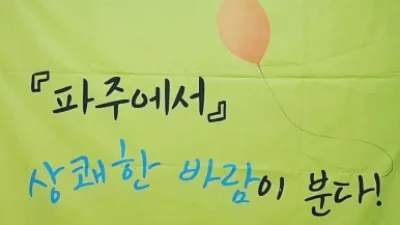 『파주에서』
상쾌한 바람이 분다!